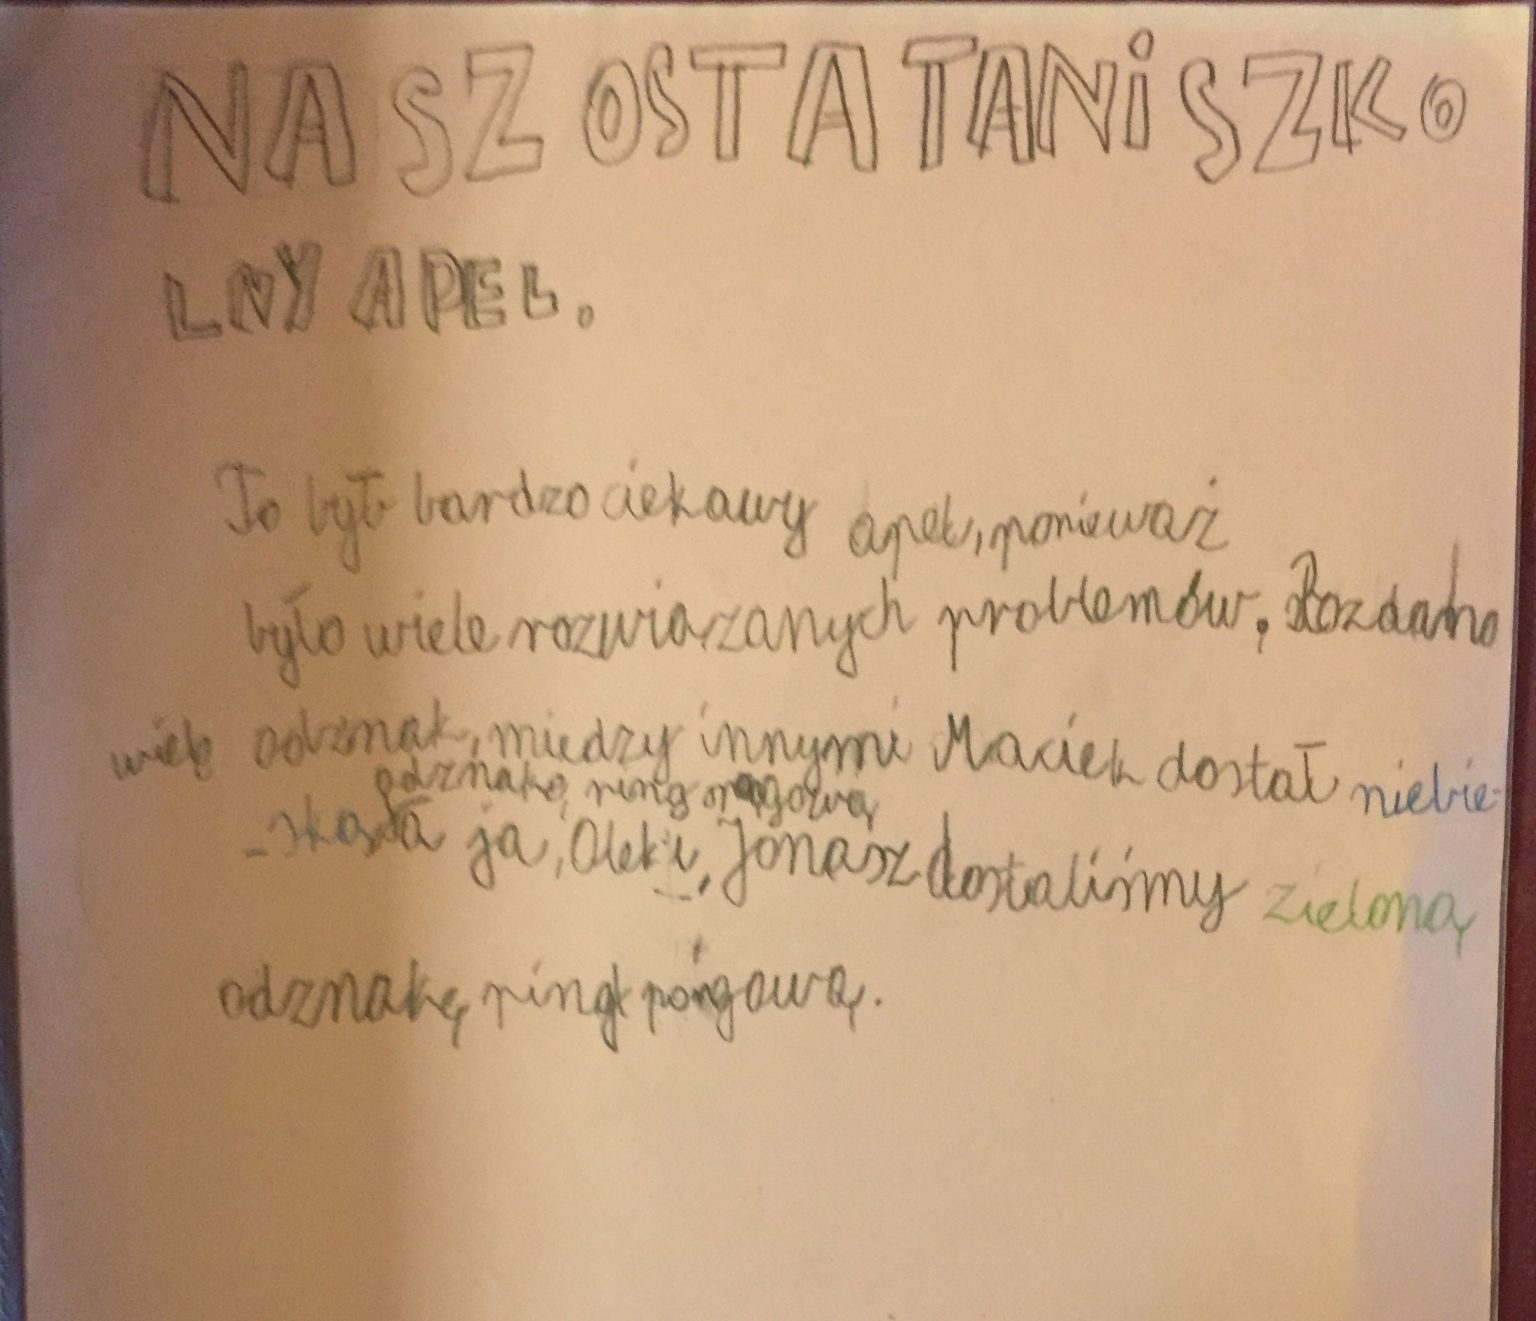 NASZ OSTATANiSZKO
LNY APEL.
To był bardzo ciekawy apel, ponieważ
było wiele rozwiazanych problemów. Rozdano
wiele odznak, miedzy innymi Maciek dostał niebie-
odznakę, ring
-ską a ja, Olek i, Jonasz dostaliśmy zieloną
odznakę ring pongową.